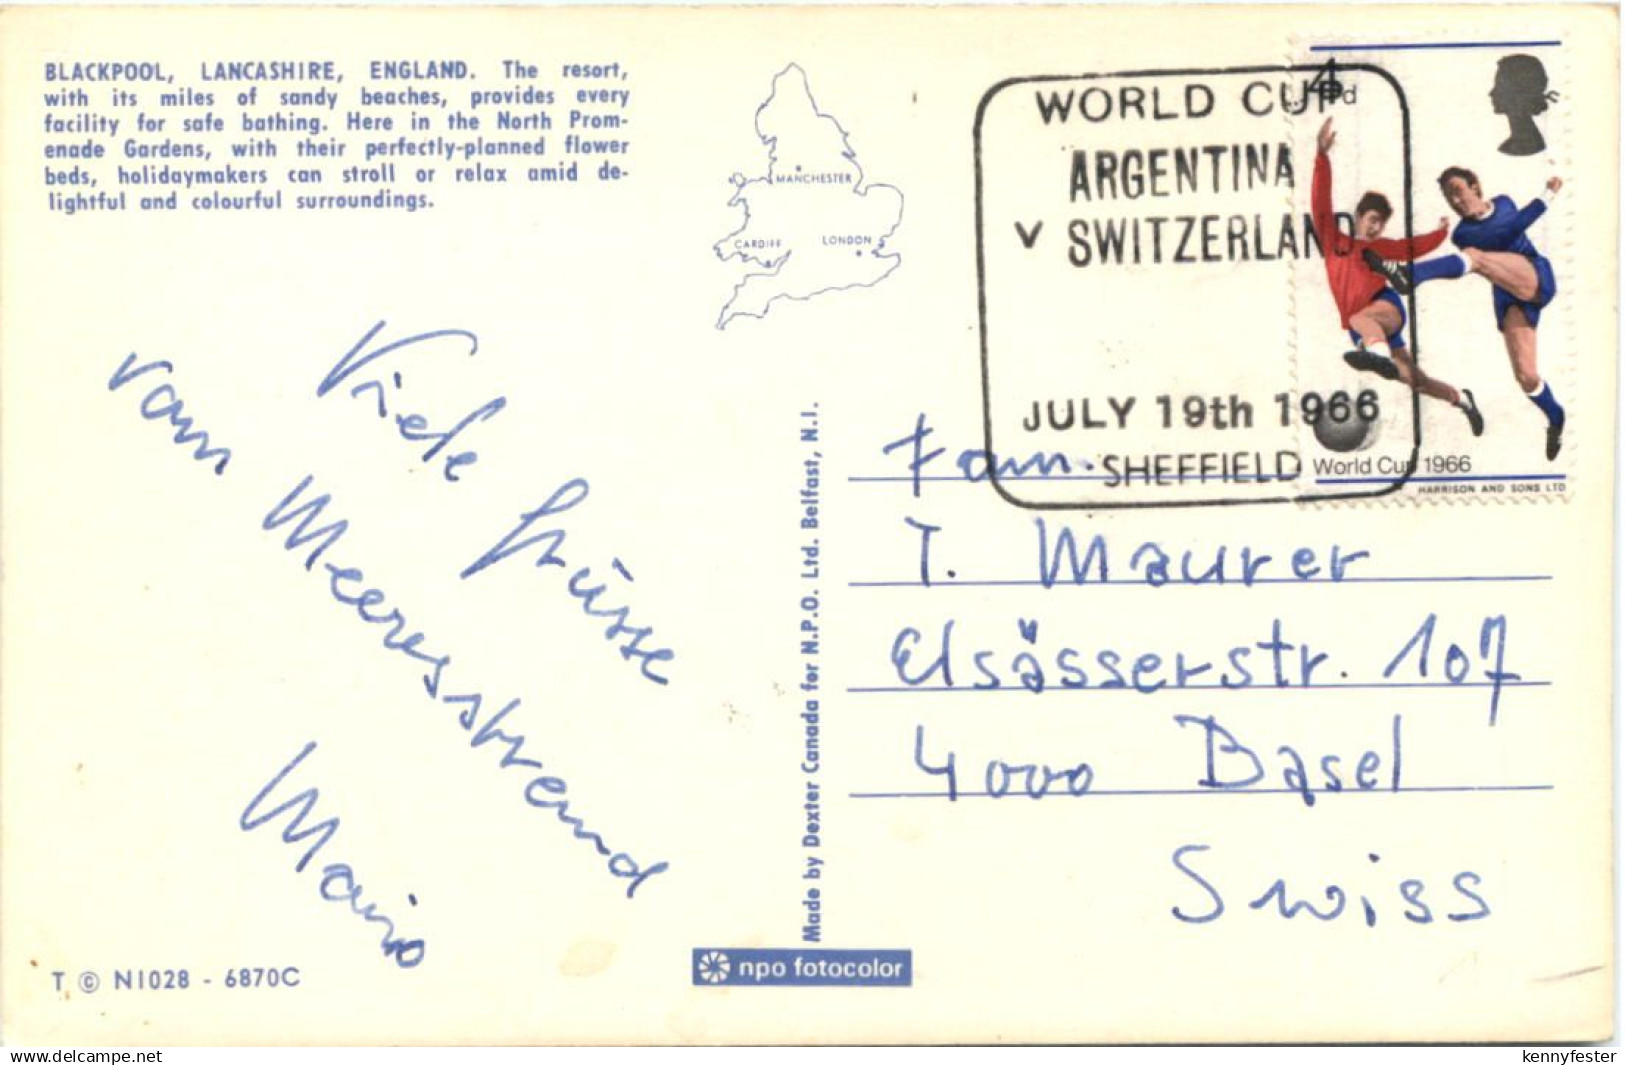 BLACKPOOL, LANCASHIRE, ENGLAND. The resort,
with its miles of sandy beaches, provides every
facility for safe bathing. Here in the North Prom-
enade Gardens, with their perfectly-planned flower
beds, holidaymakers can stroll or relax amid de-
lightful and colourful surroundings.
MANCHESTER
CARDIFF
LONDON
WORLD CUP
ARGENTINA
v SWITZERLAND
JULY 19th 1966
SHEFFIELD
4d
World Cup 1966
HARRISON AND SONS LTD
Viele Grüsse
vom Meeresstrand
Mario
Fam.
T. Maurer
Elsässerstr. 107
4000 Basel
Swiss
Made by Dexter Canada for N.P.O. Ltd. Belfast, N.I.
T © N1028 - 6870C
npo fotocolor
www.delcampe.net
kennyfester